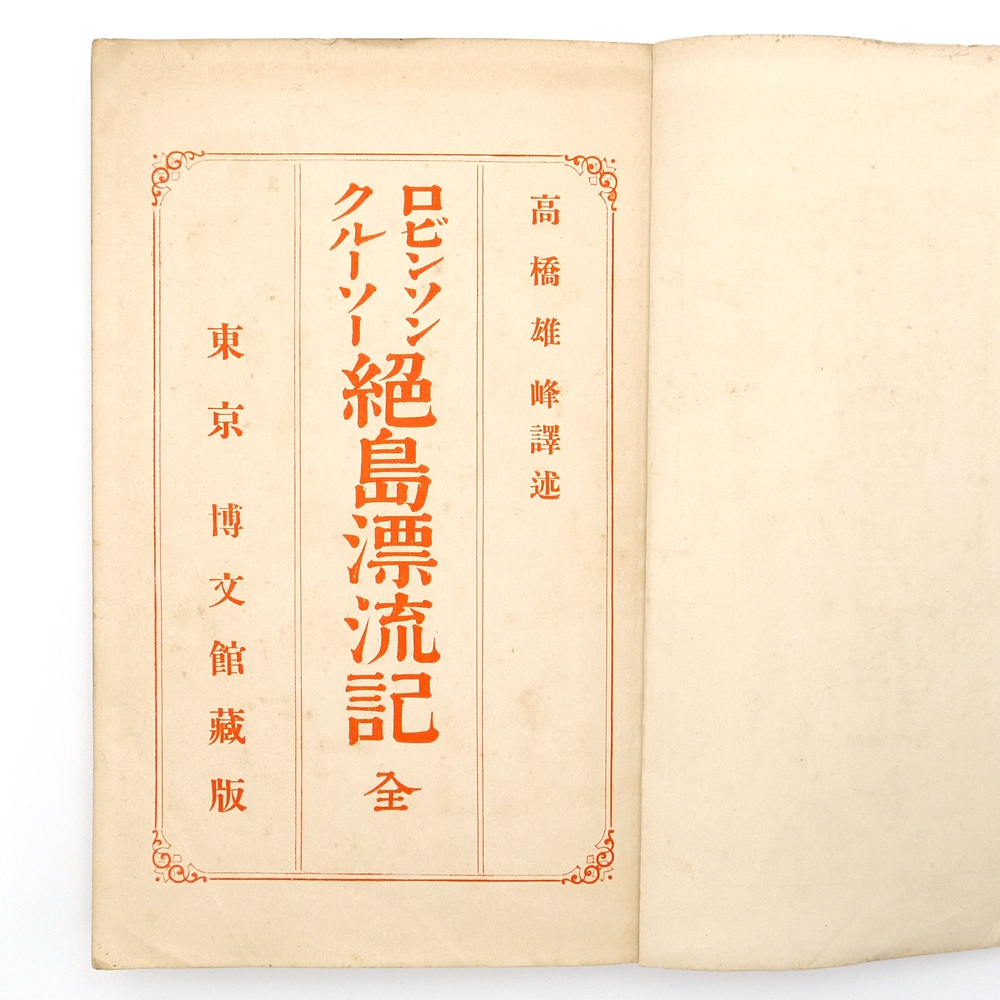 高橋雄峰譯述
ロビンソン
クルーソー
絕島漂流記
全
東京 博文館藏版